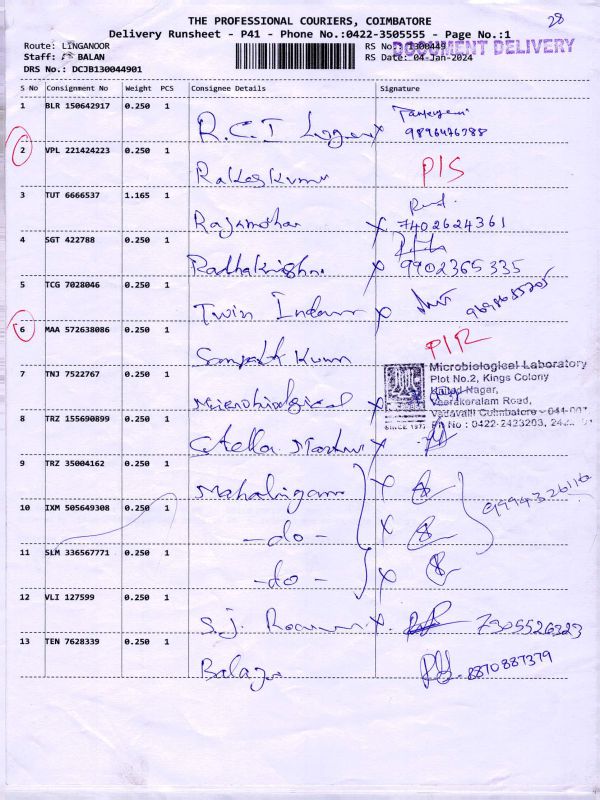 28
THE PROFESSIONAL COURIERS, COIMBATORE
Delivery Runsheet - P41 - Phone No.:0422-3505555 - Page No.:1
Route: LINGANOOR
RS No.: 1300449
DOCUMENT DELIVERY
Staff: BALAN
RS Date: 04-Jan-2024
DRS No.: DCJB130044901
S No Consignment No Weight PCS Consignee Details Signature
1 BLR 150642917 0.250 1
R.C.I
9896476388
2 VPL 221424223 0.250 1
Rakes Kumar
P/S
3 TUT 6666537 1.165 1
Rajamohan x 7402624361
4 SGT 422788 0.250 1
Radhakrishna x 9902365335
5 TCG 7028046 0.250 1
Twin Indam x 9698685205
6 MAA 572638086 0.250 1
Sampath Kumar
P/R
7 TNJ 7522767 0.250 1
Microbiological x
Microbiological Laboratory
Plot No.2, Kings Colony
United Nagar,
Veerakeralam Road,
Vadavalli Coimbatore - 641 007
SINCE 1977 Ph No : 0422-2423203,
8 TRZ 155690899 0.250 1
Stella x
9 TRZ 35004162 0.250 1
Mahalingam x
9994326116
10 IXM 505649308 0.250 1
- do - x
11 SLM 336567771 0.250 1
- do - x
12 VLI 127599 0.250 1
S.J. x 7305526323
13 TEN 7628339 0.250 1
Balaji 8870887379